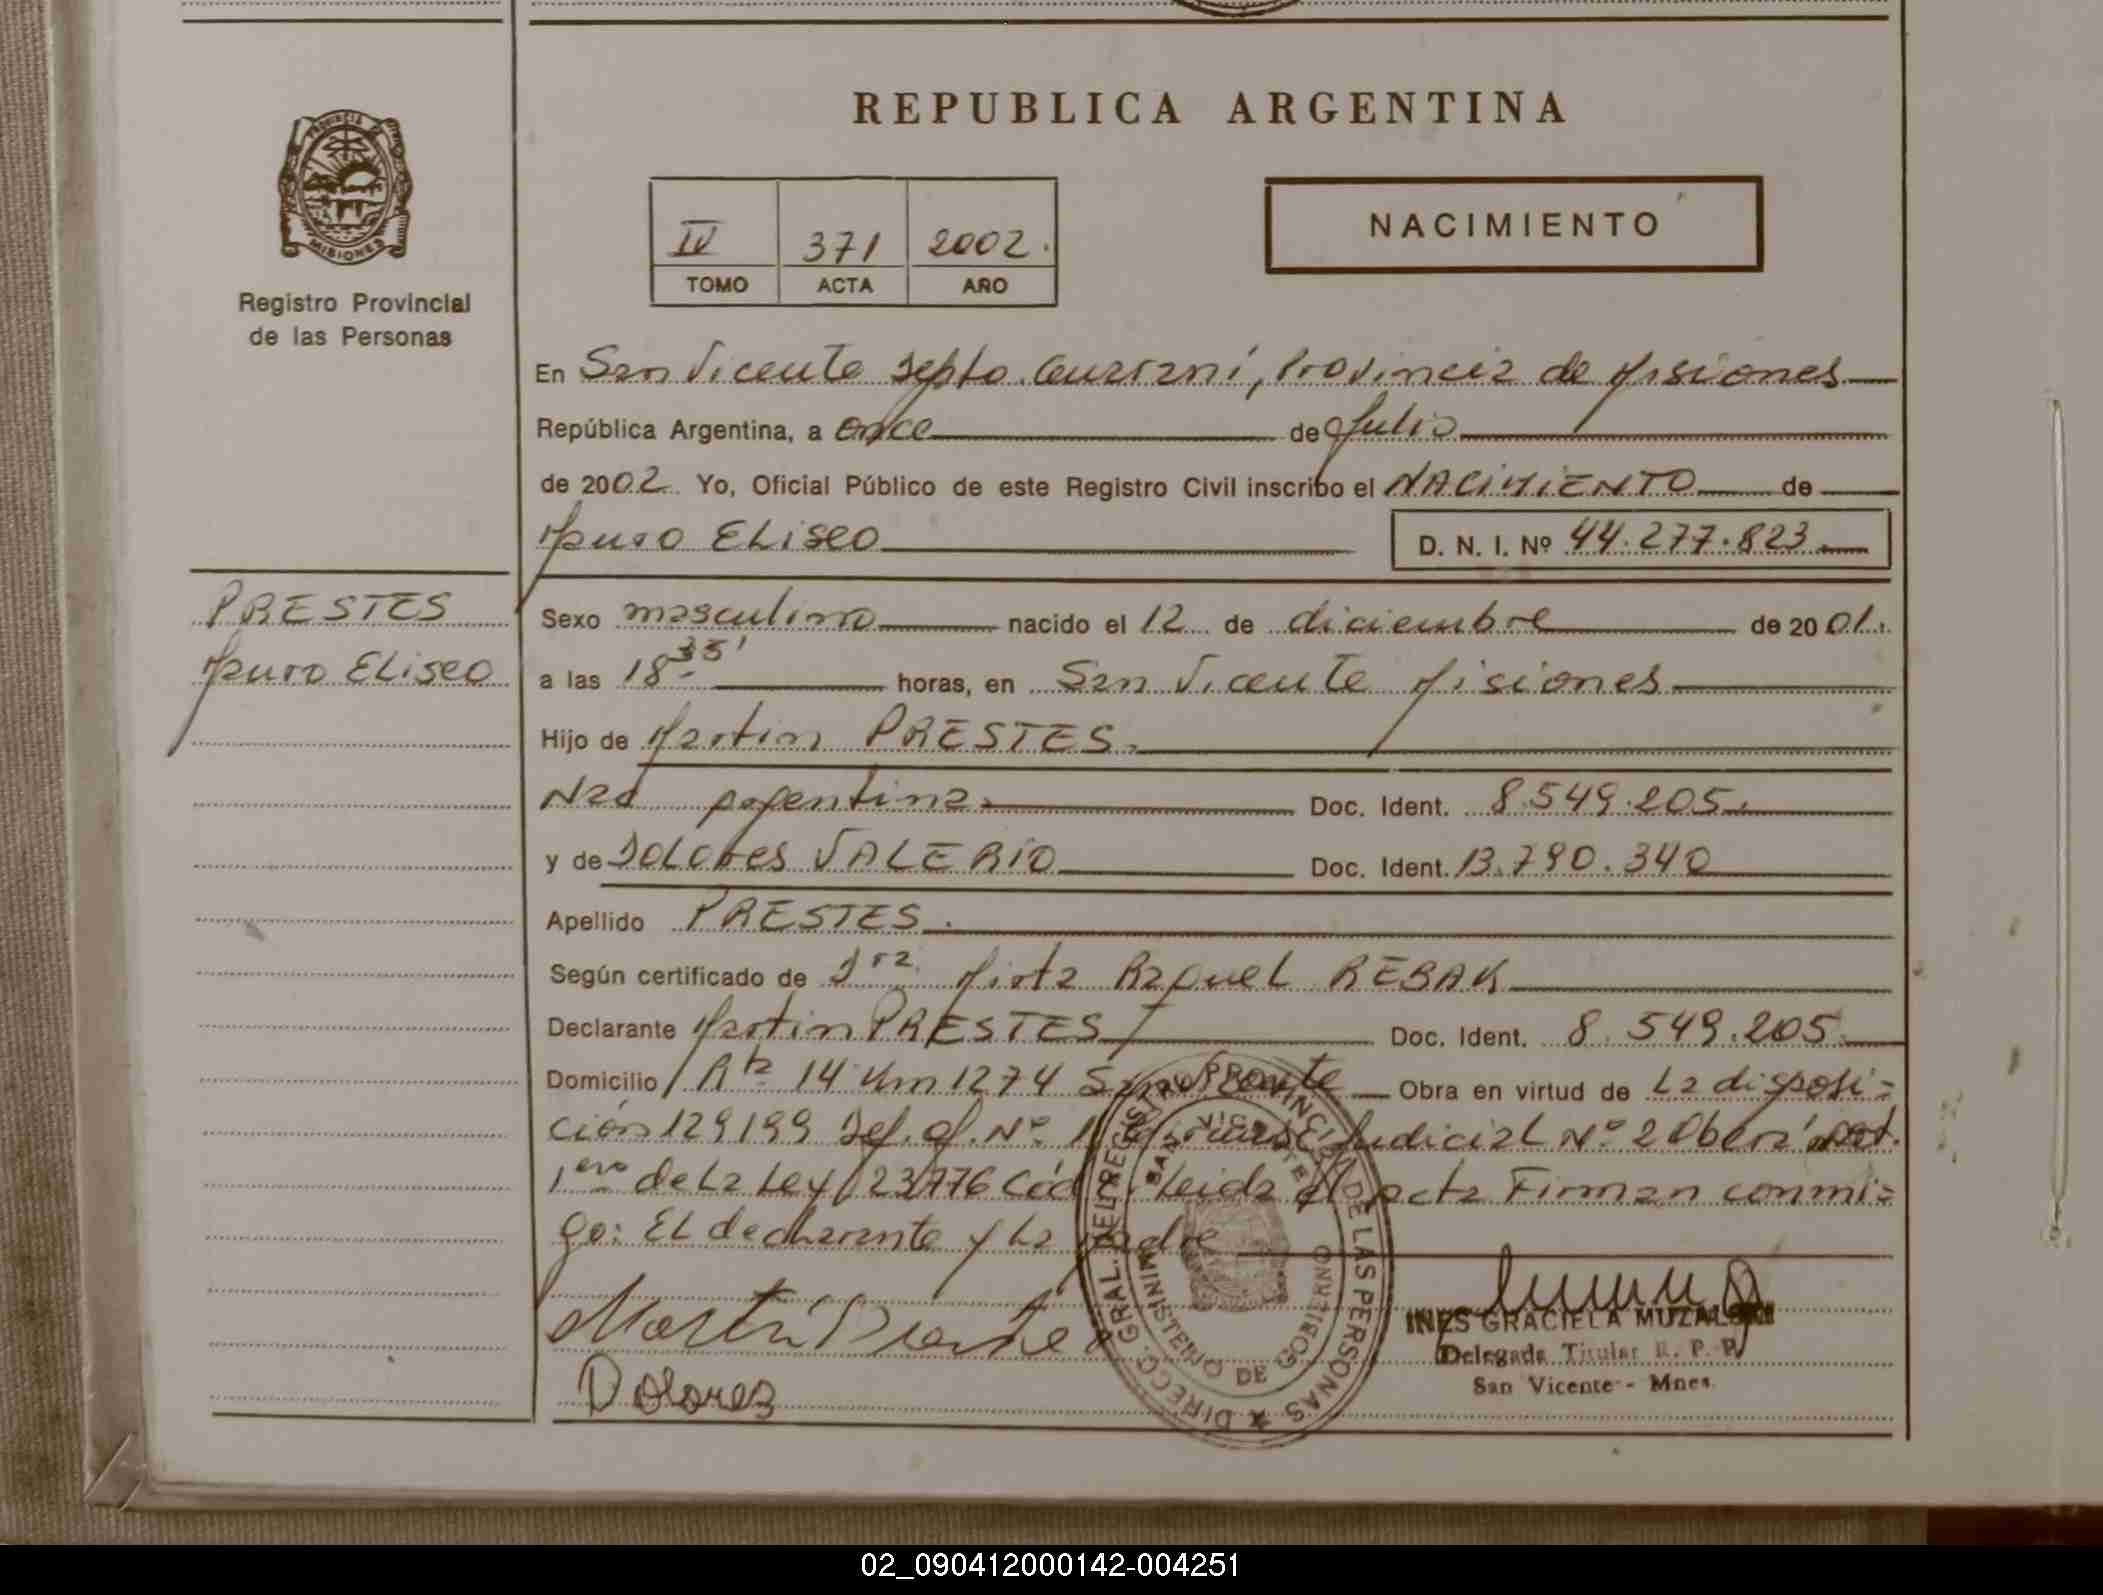 REPUBLICA ARGENTINA
PROVINCIA
MISIONES
Registro Provincial
de las Personas
IV 371 2002.
TOMO ACTA AÑO
NACIMIENTO
En San Vicente Depto. Guaraní, Provincia de Misiones
República Argentina, a once de Julio
de 2002 Yo, Oficial Público de este Registro Civil inscribo el NACIMIENTO de
Mauro ELiseo D. N. I. Nº 44.277.823
PRESTES
Mauro ELiseo
Sexo masculino nacido el 12 de diciembre de 2001.
a las 18 35' horas, en San Vicente Misiones
Hijo de Martin PRESTES.
Nad argentina Doc. Ident. 8.549.205.
y de DOLORes VALERIO Doc. Ident. 13.790.340
Apellido PRESTES.
Según certificado de Dra. Mirta RaqueL REBAK
Declarante Martin PRESTES Doc. Ident. 8.549.205.
Domicilio Rta 14 Km 1274 San Vicente Obra en virtud de La disposi=
ción 129/99 Def. of. Nº 1 Judicial Nº 2 Oberá art.
1ero de La Ley 23776 Leida el acta Firman conmi=
go: EL declarante y La madre
Martin Prestes
Dolores
INES GRACIELA MUZALSKI
Delegada Titular R. P. P.
San Vicente - Mnes.
DIRECC. GRAL. DEL REGISTRO PROVINCIAL DE LAS PERSONAS
SAN VICENTE
MINISTERIO DE GOBIERNO
02_090412000142-004251